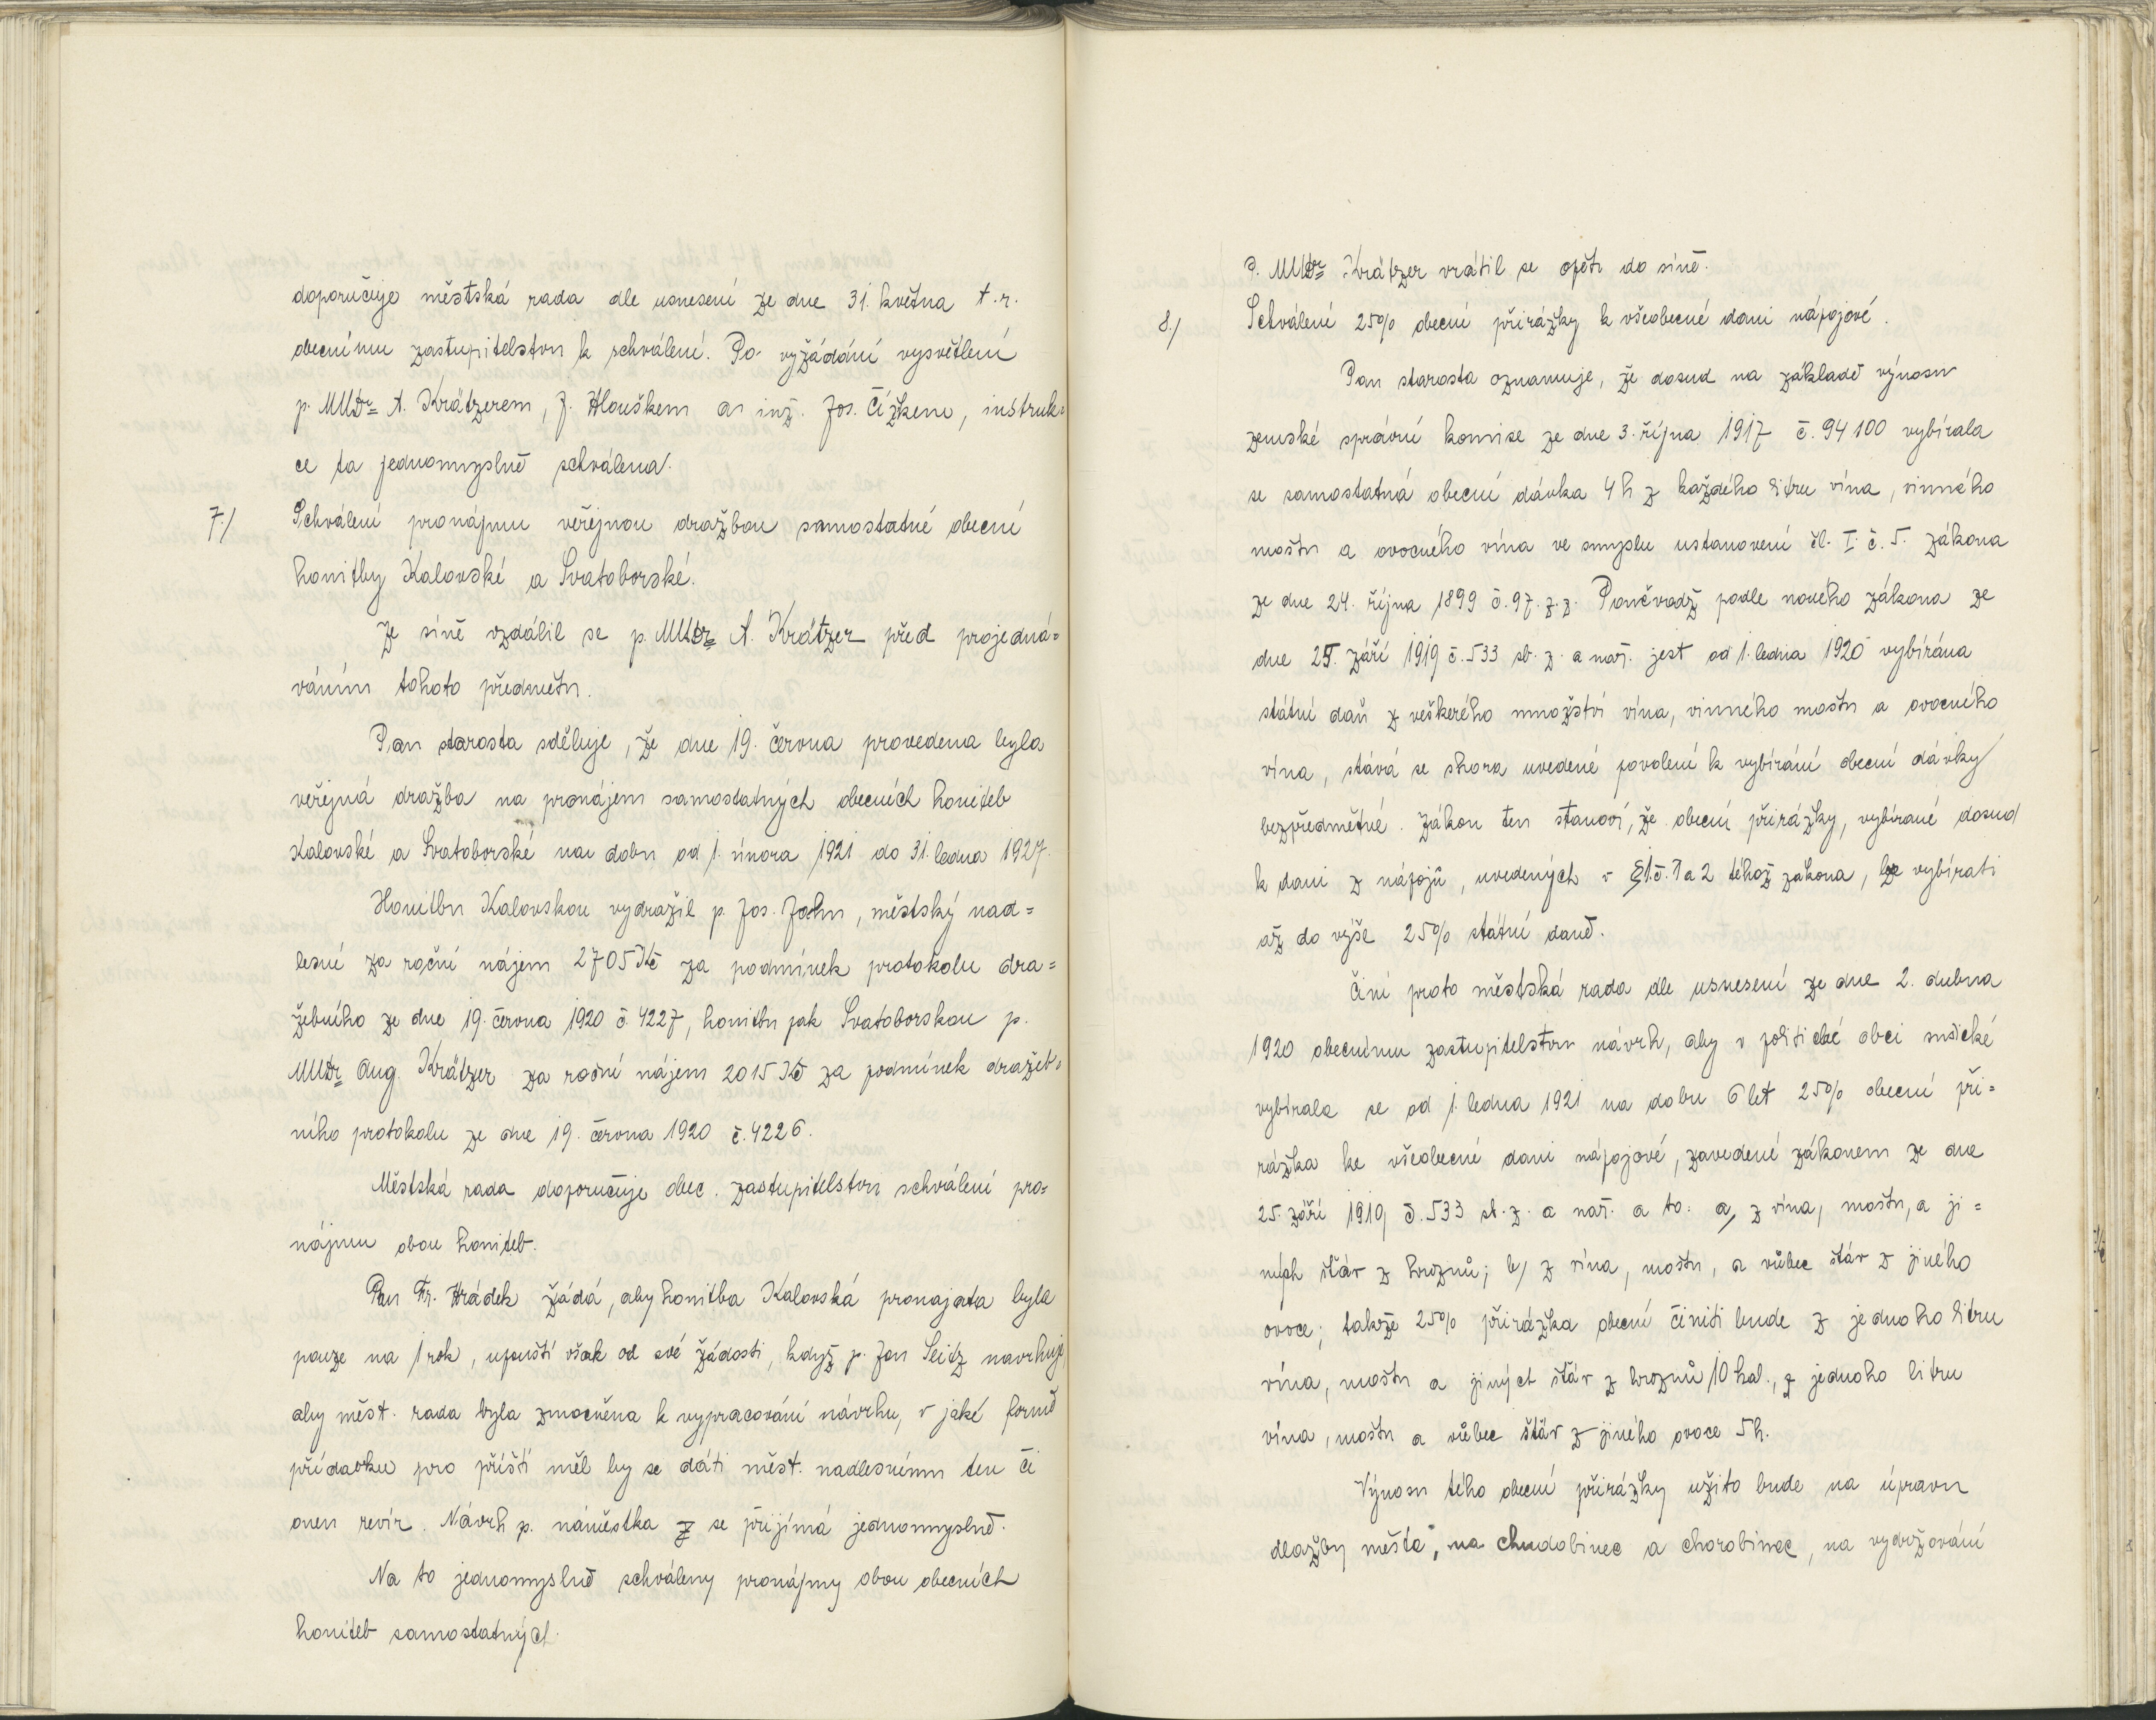 doporučuje městská rada dle usnesení ze dne 31. května t. r.
obecnímu zastupitelstvu k schválení. Po vyžádání vysvětlení
p. MUDr A. Krätzerem, J. Hlouškem a inž. Jos. Čížkem, instruk-
ce ta jednomyslně schválena.
7./ Schválení pronájmu veřejnou dražbou samostatné obecní
honitby Kalovské a Svatoborské.
Ze síně vzdálil se p. MUDr A. Krätzer před projedná=
váním tohoto předmětu.
Pan starosta sděluje, že dne 19. června provedena byla
veřejná dražba na pronájem samostatných obecních honiteb
Kalovské a Svatoborské na dobu od 1. února 1921 do 31. ledna 1927.
Honitbu Kalovskou vydražil p. Jos. Jahn, městský nad=
lesní za roční nájem 2705 Kč za podmínek protokolu dra=
žebního ze dne 19. června 1920 č. 4227, honitbu pak Svatoborskou p.
MUDr Aug. Krätzer za roční nájem 2015 Kč za podmínek dražeb-
ního protokolu ze dne 19. června 1920 č. 4226.
Městská rada doporučuje obec. zastupitelstvu schválení pro=
nájmu obou honiteb.
Pan Fr. Hrádek žádá, aby honitba Kalovská pronajata byla
pouze na 1 rok, upouští však od své žádosti, když p. Jan Seitz navrhuje,
aby měst. rada byla zmocněna k vypracování návrhu, v jaké formě
přídavku pro příští měl by se dáti měst. nadlesnímu ten či
onen revír. Návrh p. náměstka se přijímá jednomyslně.
Na to jednomyslně schváleny pronájmy obou obecních
honiteb samostatných.
P. MUDr Krätzer vrátil se opět do síně.
8./ Schválení 25% obecní přirážky k všeobecné dani nápojové.
Pan starosta oznamuje, že dosud na základě výnosu
zemské správní komise ze dne 3. října 1917 č. 94100 vybírala
se samostatná obecní dávka 4 h z každého litru vína, vinného
moštu a ovocného vína ve smyslu ustanovení čl. I. č. 5. zákona
ze dne 24. října 1899 č. 97. z. z. Poněvadž podle nového zákona ze
dne 25. září 1919 č. 533 sb. z. a nař. jest od 1. ledna 1920 vybírána
státní daň z veškerého množství vína, vinného moštu a ovocného
vína, stává se shora uvedené povolení k vybírání obecní dávky
bezpředmětné. Zákon ten stanoví, že obecní přirážky, vybírané dosud
k dani z nápojů, uvedených v § 1. č. 1 a 2 téhož zákona, lze vybírati
až do výše 25% státní daně.
Činí proto městská rada dle usnesení ze dne 2. dubna
1920 obecnímu zastupitelstvu návrh, aby v politické obci sušické
vybírala se od 1. ledna 1921 na dobu 6 let 25% obecní při=
rážka ke všeobecné dani nápojové, zavedené zákonem ze dne
25. září 1919 č. 533 sb. z. a nař. a to: a, z vína, moštu, a ji=
ných šťáv z hroznů; b/ z vína, moštu, a vůbec šťáv z jiného
ovoce; takže 25% přirážka obecní činiti bude z jednoho litru
vína, moštu a jiných šťáv z hroznů 10 hal., z jednoho litru
vína, moštu a vůbec šťáv z jiného ovoce 5 h.
Výnosu této obecní přirážky užito bude na úpravu
dlažby města, na chudobinec a chorobinec, na vydržování